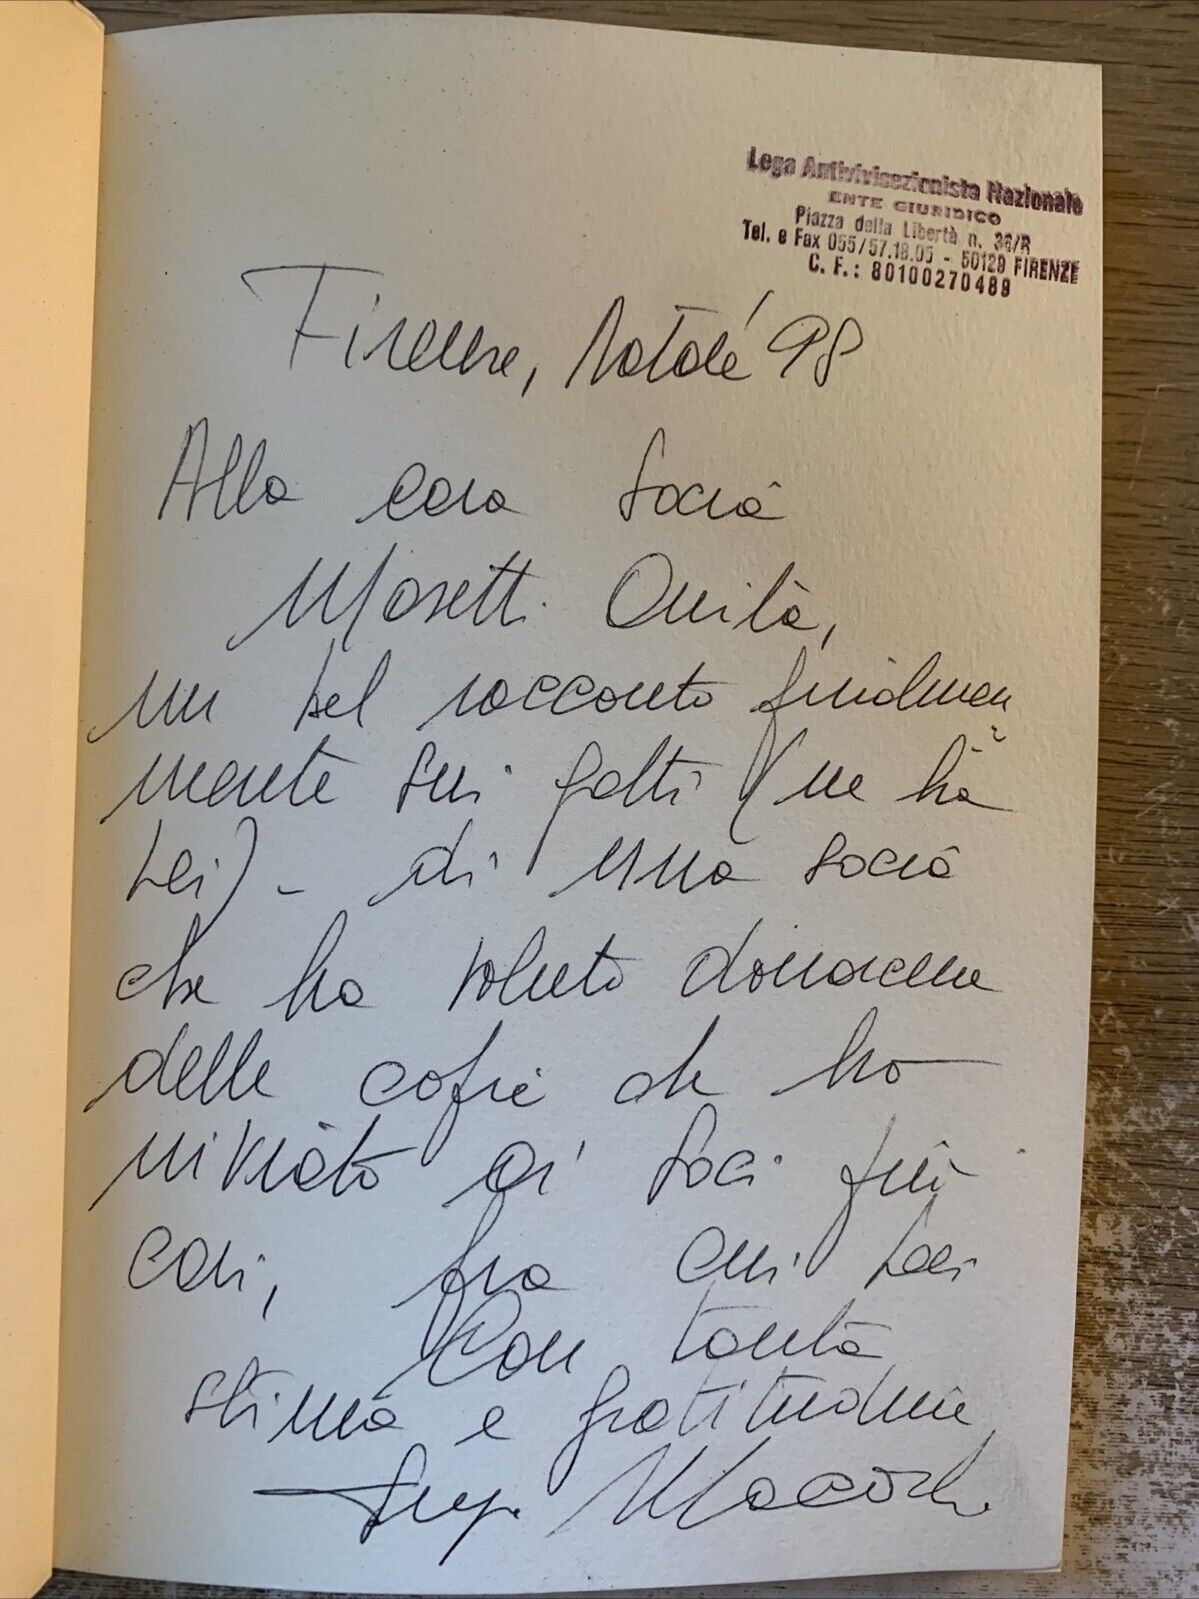 Lega Antivivisezionista Nazionale
ENTE GIURIDICO
Piazza della Libertà n. 36/R
Tel. e Fax 055/57.18.05 - 50129 FIRENZE
C. F.: 80100270489
Firenze, Natale '98
Alla cara Socia
Mosetti
un bel racconto
mente sui gatti (ne ha
Lei) - di una socia
che ha voluto donarcene
delle copie che ho
inviato ai Soci più
cari, fra cui Lei
Con tanta
stima e gratitudine